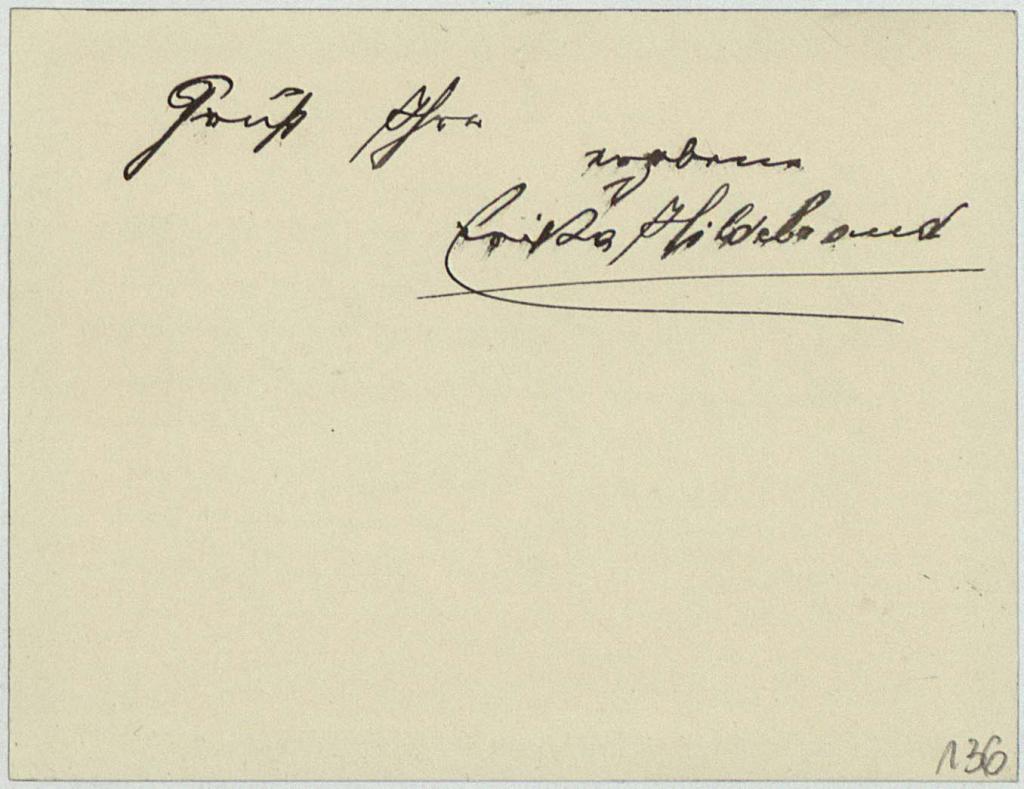 Gruß Ihre
ergebene
Erika Hildebrand
136